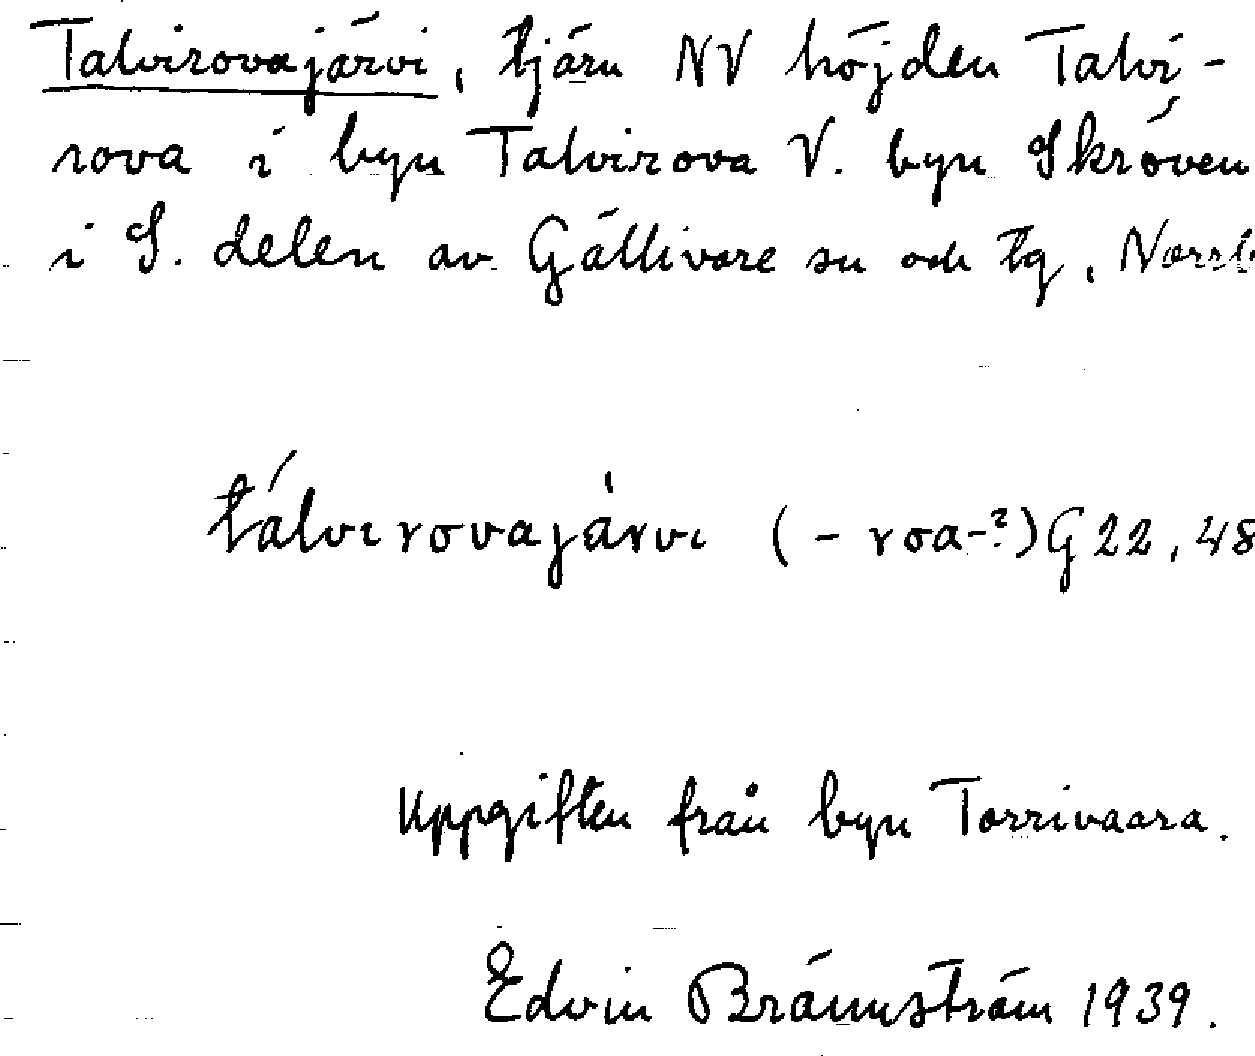 Talvirovajärvi, tjärn NV höjden Talvi-
rova i byn Talvirova V. byn Skröven
i S. delen av Gällivare sn och tg, Norrb
tálvɩrovajàrvɩ (-roa-?) G 22, 48
Uppgiften från byn Torrivaara.
Edvin Brännström 1939.